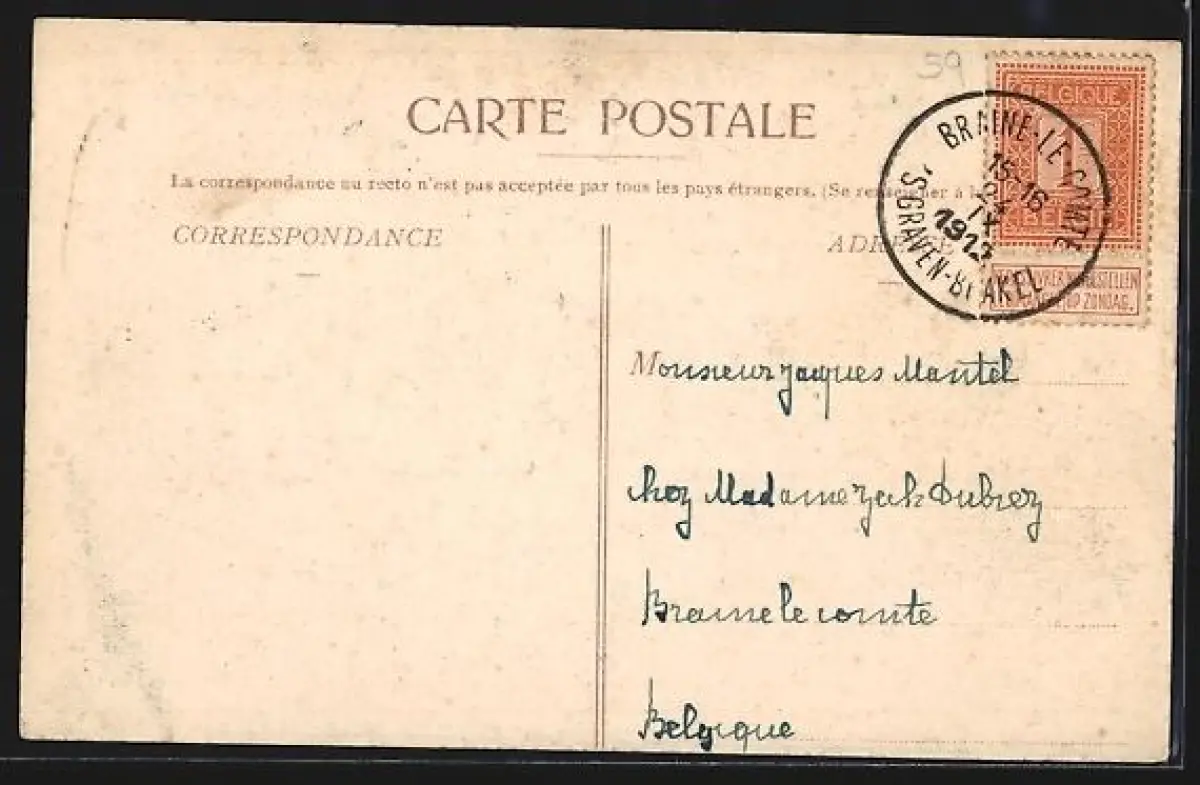 59
CARTE POSTALE
La correspondance au recto n'est pas acceptée par tous les pays étrangers. (Se renseigner à la
CORRESPONDANCE
ADRESSE
BELGIQUE
1
BELGIË
NIET BESTELLEN
OP ZONDAG.
BRAINE-LE-COMTE
15-16
IX
1912
'S GRAVEN-BRAKEL
Monsieur Jacques Mantel
chez Madame Dubrez
Braine le comte
Belgique